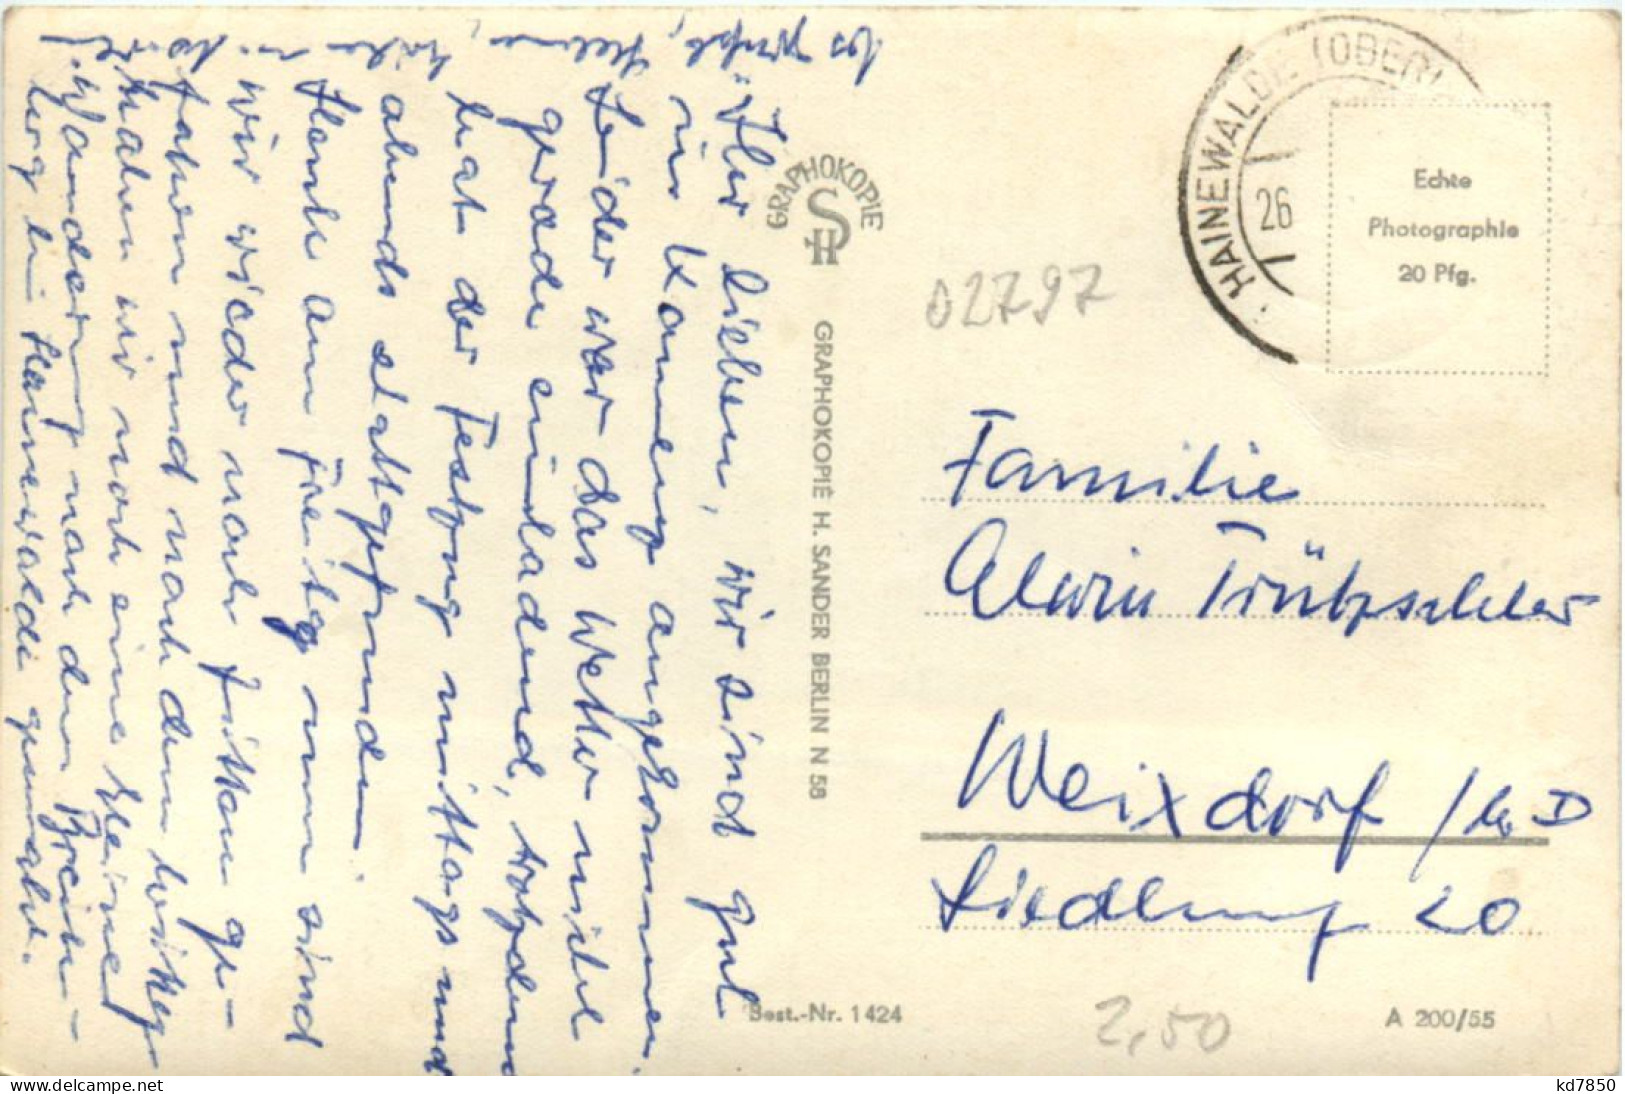 Ihr Lieben, wir sind gut
in Kamenz angekommen.
Leider war das Wetter nicht
gerade einladend, trotzdem
hat der Festzug mittags und
abends stattgefunden.
Heute am Freitag nun sind
wir wieder nach Zittau ge-
fahren und nach dem
haben wir noch eine kleine
Wanderung nach dem Breite-
berg bei Hainewalde gemacht.
GRAPHOKOPIE
HS
GRAPHOKOPIE H. SANDER BERLIN N 58
HAINEWALDE (OBERL
26
Echte
Photographie
20 Pfg.
02797
Familie
Alwin Trützschler
Weixdorf / b. D
Siedlung 20
Best.-Nr. 1424
2,50
A 200/55
kd7850